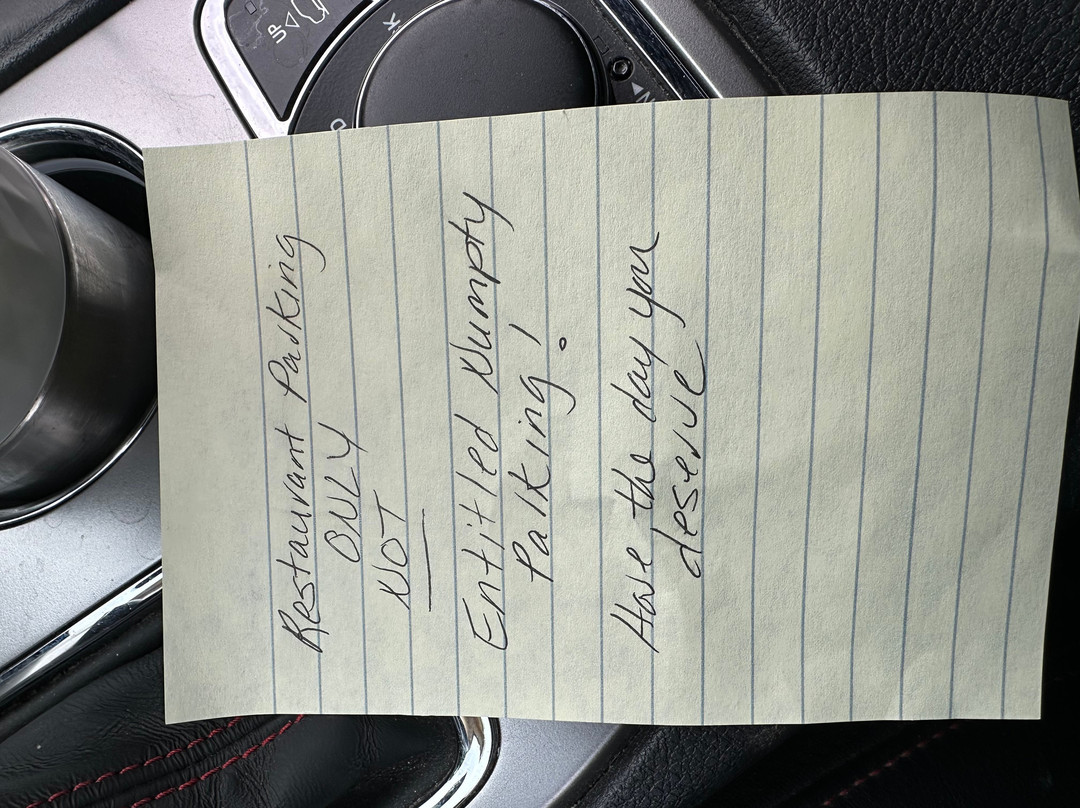 UP
K
D
Restaurant Parking
ONLY
NOT
Entitled Numpty
Parking!
Have the day you
deserve